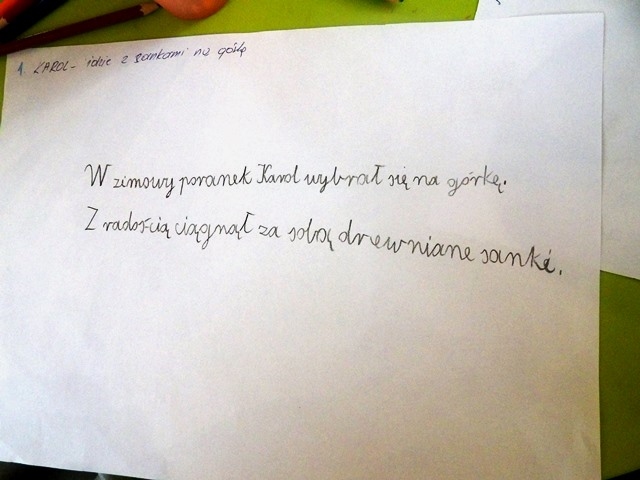 1. KAROL - idzie z sankami na górkę
W zimowy poranek Karol wybrał się na górkę.
Z radością ciągnął za sobą drewniane sanki.